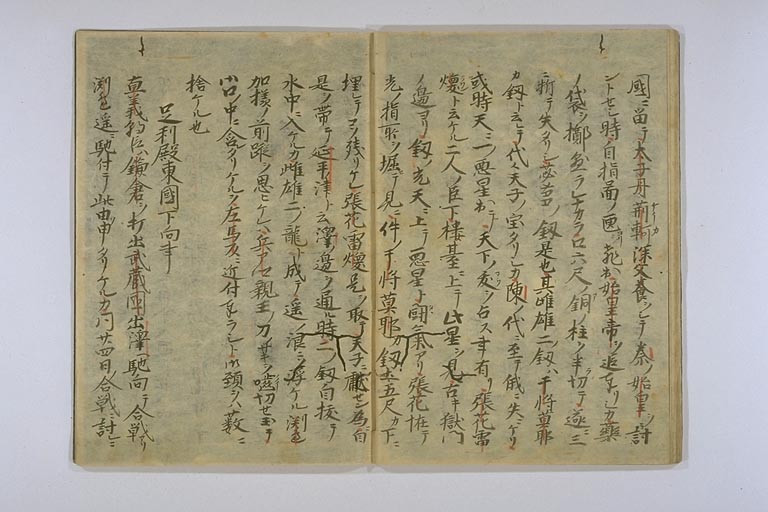 國ニ留テ太子丹荊軻深ク養シテ秦ノ始皇ヲ討
ントセシ時自指図ノ匣ヨリ飛出始皇帝ヲ追奉リシカ薬
ノ袋ヲ擲懸ラレナカラ口六尺ノ銅ノ柱ヲ半切テ遂ニ三
ニ折テ失タリシ匕首ノ釼是也其雌雄二ノ釼ハ干将莫耶
カ釼ト云テ代々天子ノ宝タリシカ陳ノ代ニ至テ俄ニ失ニケリ
或時天ニ一ノ悪星出テ天下ノ夭ヲ占ス事有リ張花雷
煥ト云ケル二人ノ臣下楼臺ニ上テ此星ヲ見ニ古キ獄門
ノ邉ヨリ釼ノ光天ニ上テ悪星ト闘氣アリ張花怪テ
光ノ指所ヲ堀テ見ニ件ノ干将莫耶カ釼土五尺カ下ニ
埋レテソ残リケル張花雷煥是ヲ取テ天子ニ献セン為自
是ヲ帯テ延平津ト云澤ノ邊ヲ通ル時二ノ釼自抜テ
水中ニ入ケルカ雌雄二ノ龍ト成テ遥ノ浪ニ浮ケル渕邉
加様ノ前蹤ヲ思ヒケレハ兵親王ノ刀ノサキヲ噬切セ玉テ
御口中ニ含タリケルヲ左馬頭ニ近付奉ラシト御頚ヲハ薮ニ
捨ケル也
足利殿東國下向事
直義朝臣ハ鎌倉ヲ打出武蔵国出澤ヘ馳向テ合戦アリ
渕邉遥ニ馳付テ此由申タリケルカ同廿四日ノ合戦ニ討レニ